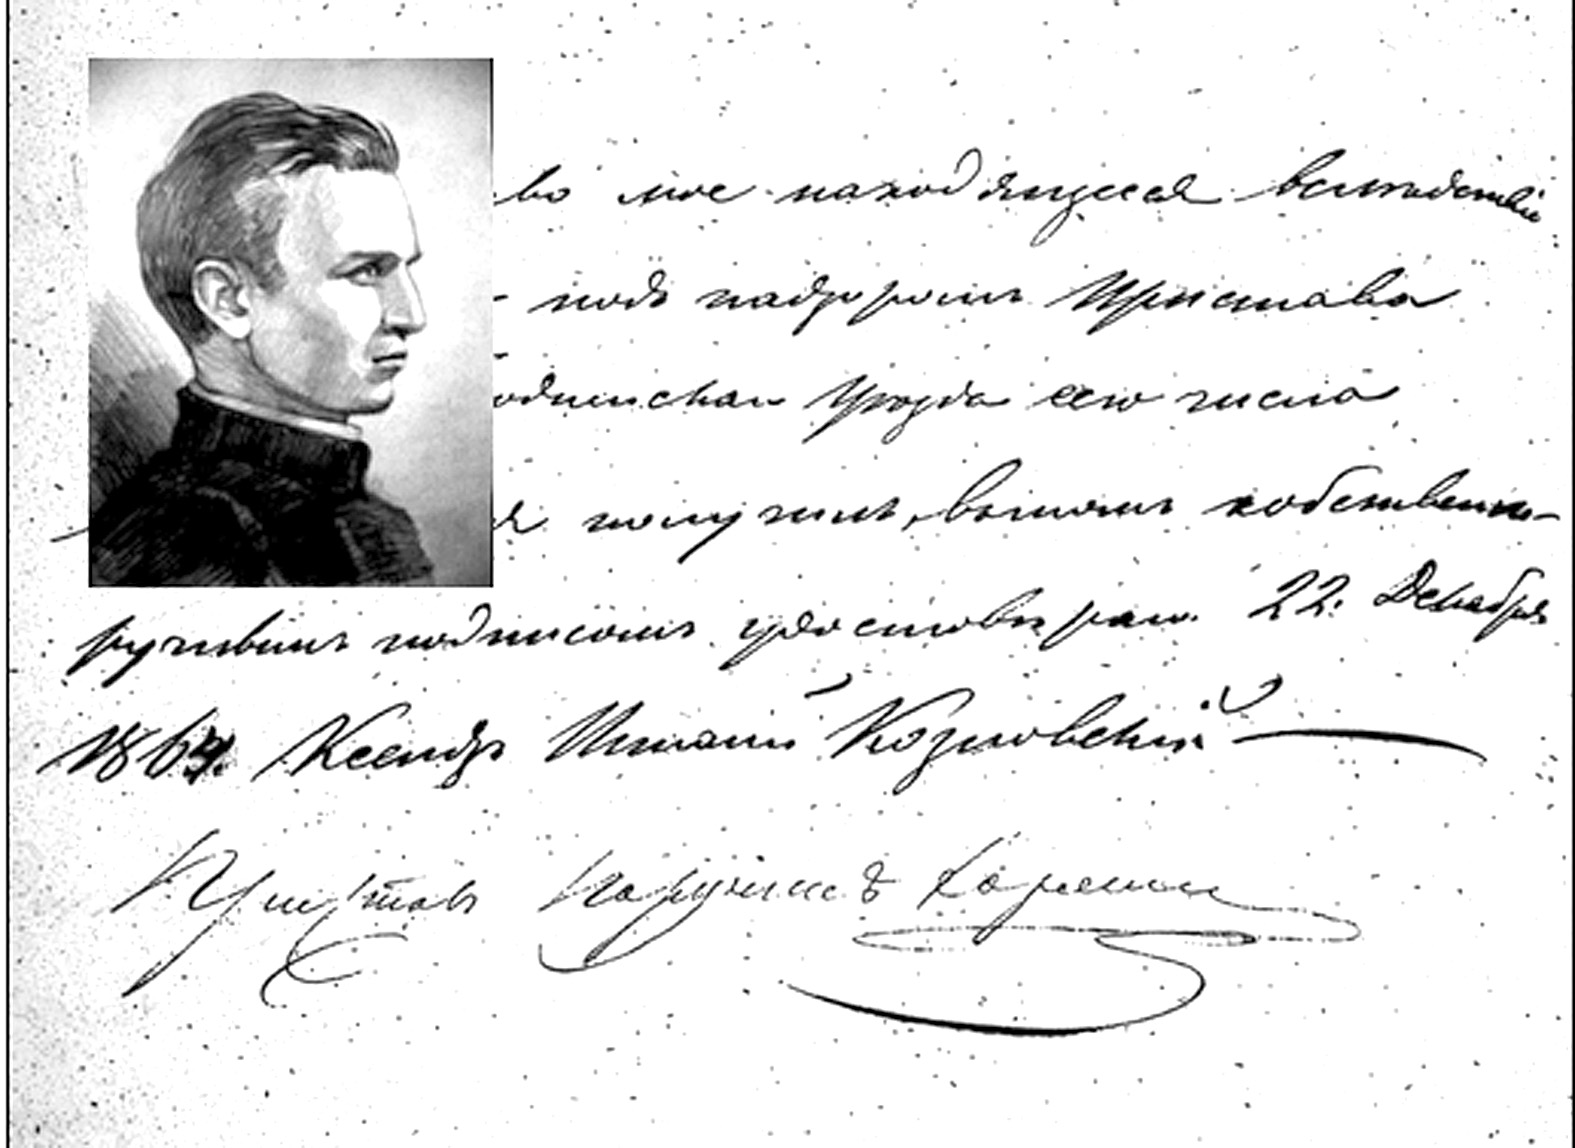 во мое находящееся вследствіи
подъ надзоромъ Пристава
Уѣзда сего числа
получилъ, въ томъ собственно-
ручнымъ подписомъ удостовѣряю. 22. Декабря
1864. Ксендзъ Игнатій Козловскій
Приставъ Поручикъ